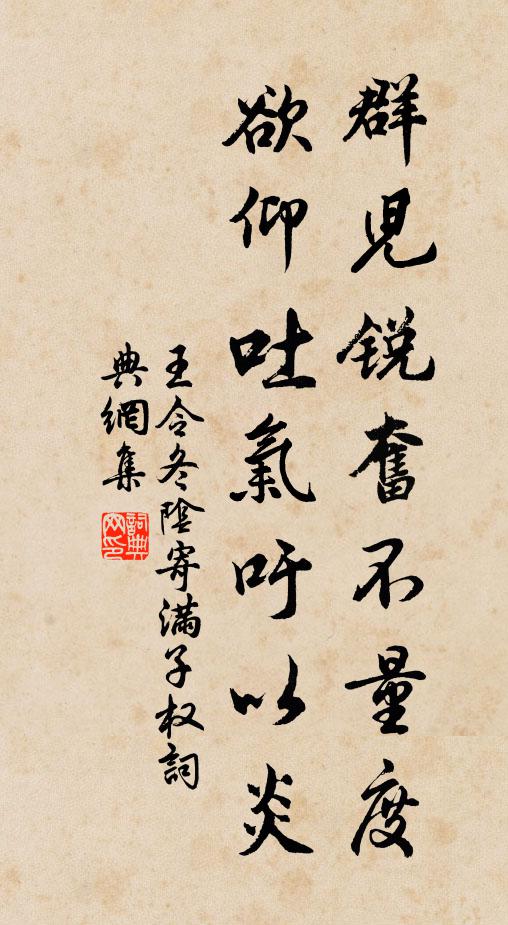 群児銳奮不量度
欲仰吐氣吁以炎
王令冬陰寄滿子权詞
典網集
詞典
网印